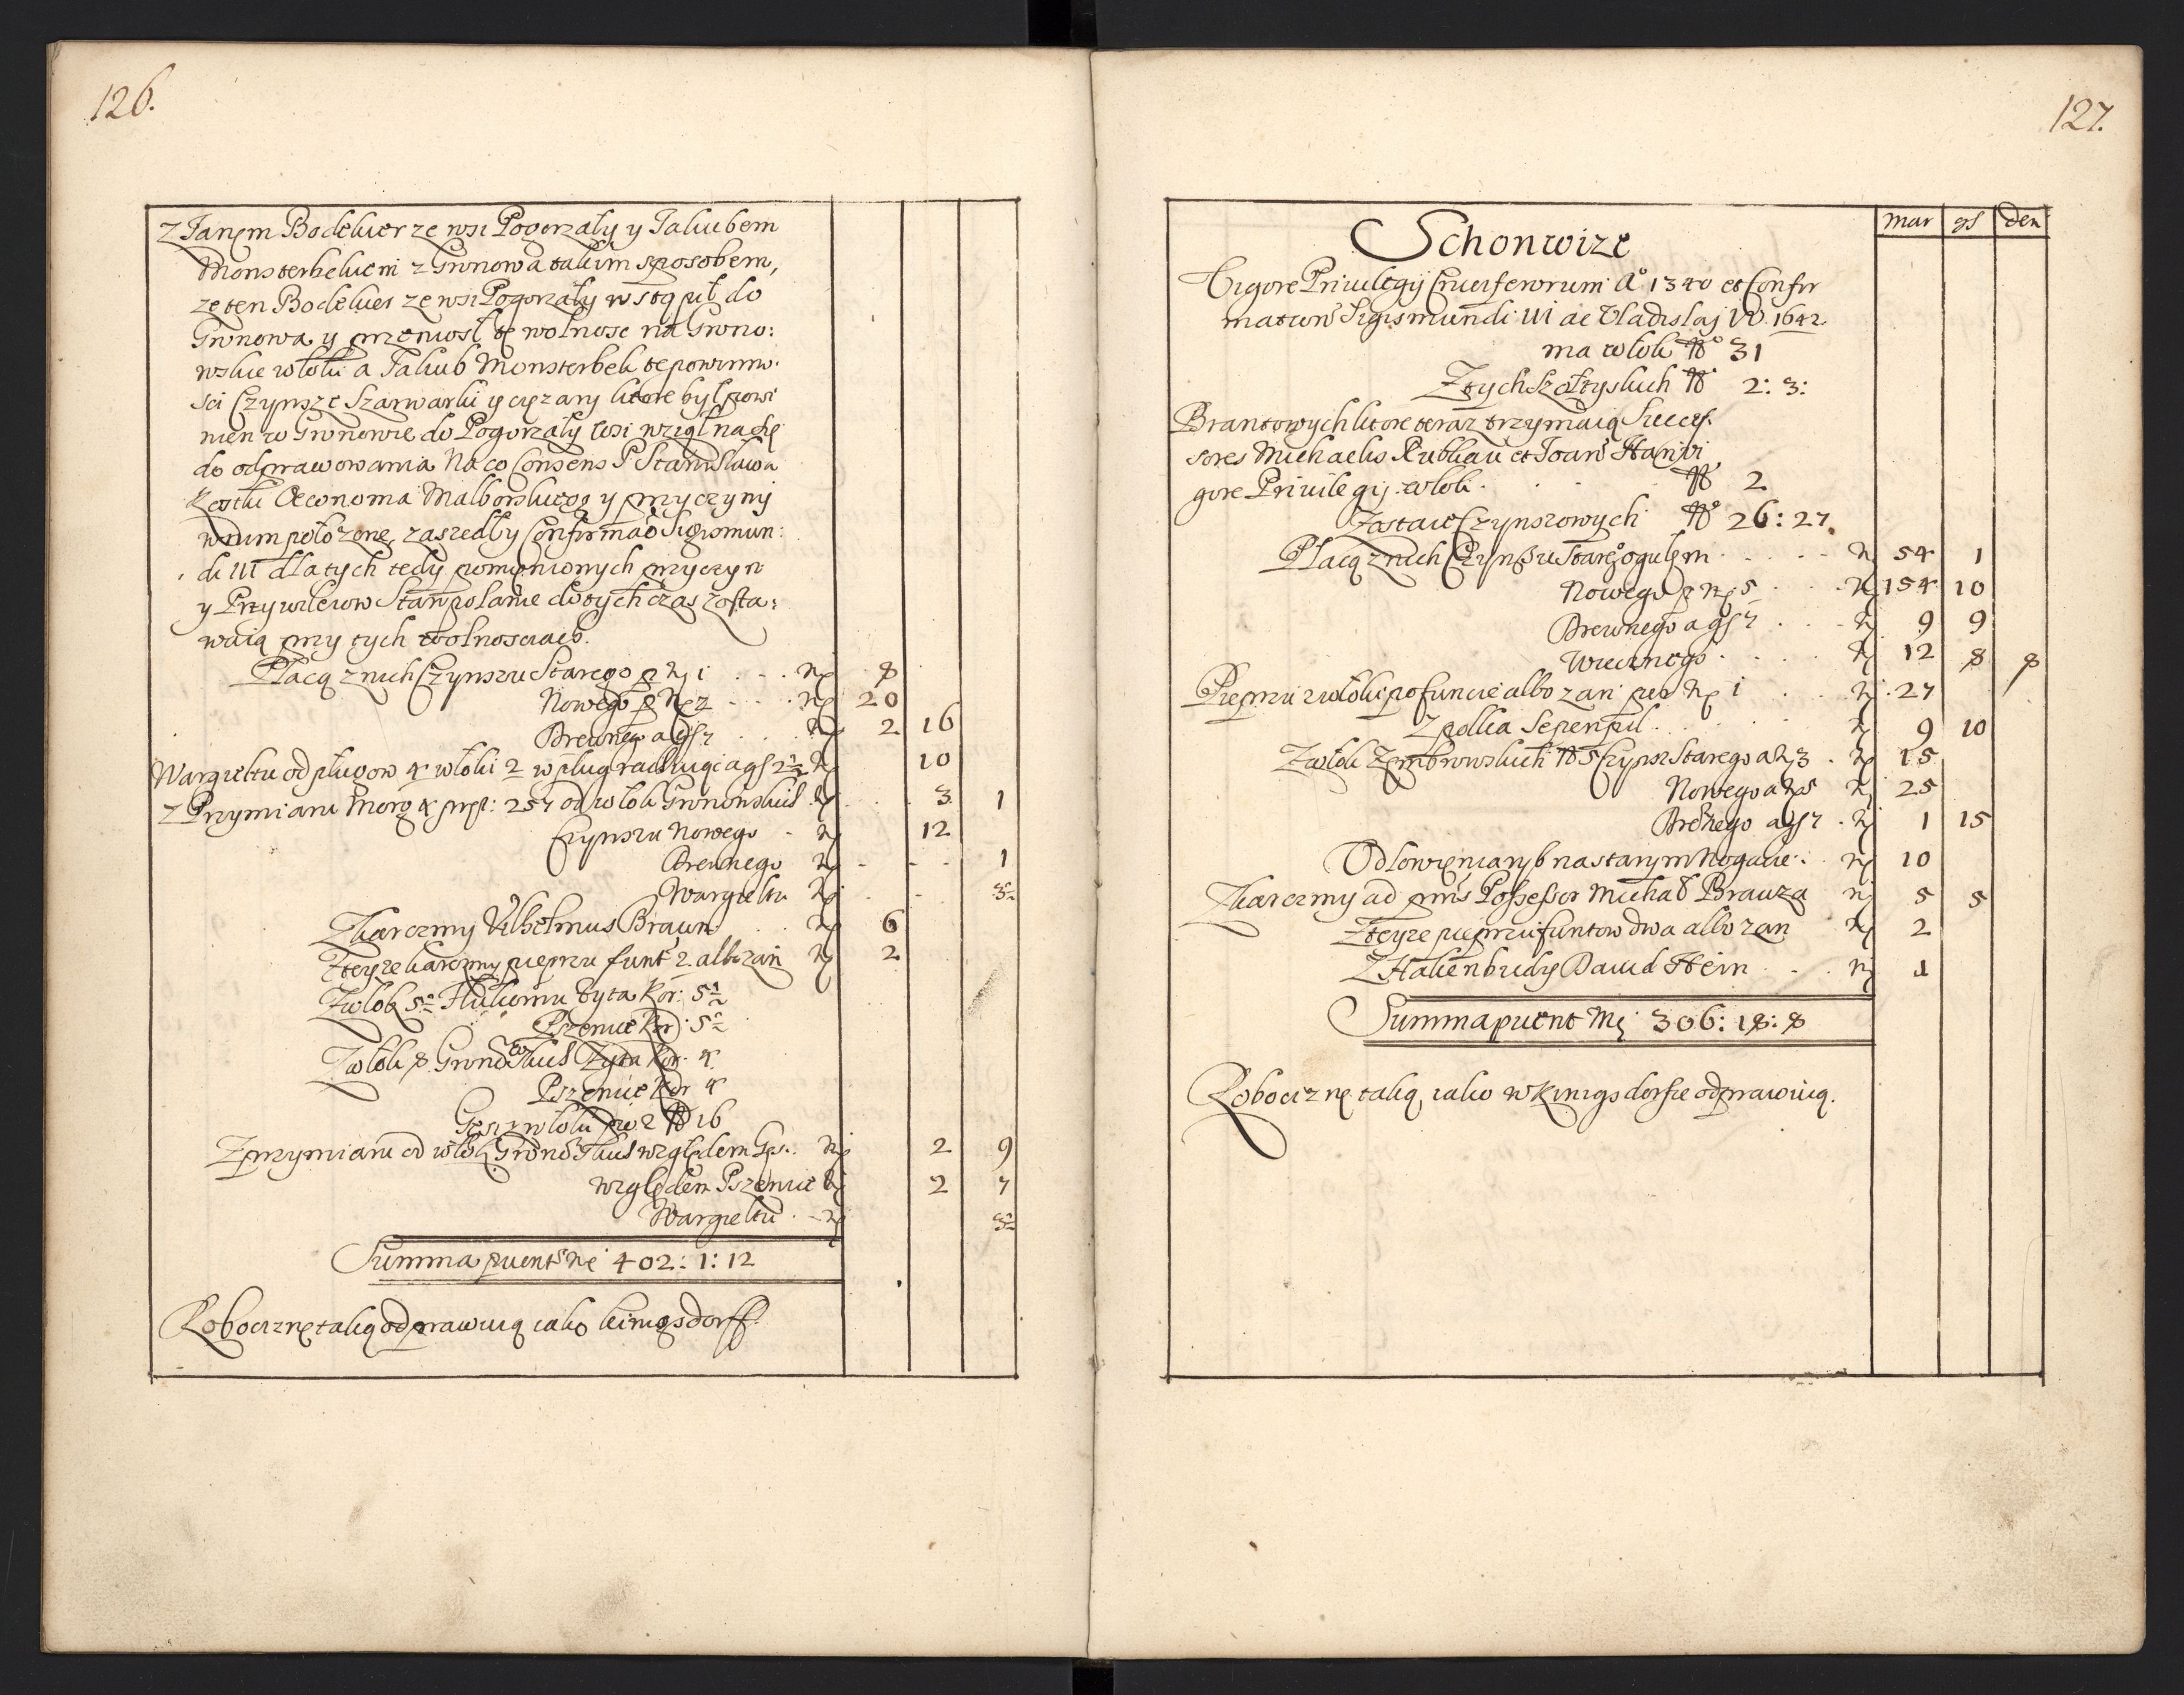 126.
z Janem Bodeker ze wsi Pogorzały y Jakubem
Monsterbekiem z Gronowa takim sposobem,
ze ten Bodeker ze wsi Pogorzały wstąpił do
Gronowa y przeniosł tę wolnosc na Grono:
wskie włoki a Jakub Monsterbek te powinno:
sci Czynsze Szarwarki y cięzary ktore był powi
nien w Gronowie do Pogorzały wsi wziął na się
do odprawowania Na co Consens P Stanisława
Kostki Œconoma Malborskiego y przyczyny
w nim położone, zaszedł y Confirmão Sigismun:
di III dla tych tedy pomienionych przyczyn
y Przywileiow Starpolanie do tych czas zosta:
waią przy tych wolnosciach.
Płacą z nich Czynszu Starego p ɱ 1 . . . ɱ 8
Nowego p ɱ 2 - . . . ɱ 20
Drewnego a gs 7 . . . ɱ 2 16
Wargieltu od pługow 4 włoki 2 w pług rachuiąc a gs 2½ ɱ 10
Z Przymiaru Morg 4 pręt: 257 od włok Gronowskich ɱ 3 1
Czynszu Nowego - ɱ 12
Drewnego ɱ - - 1
Wargieltu ɱ
Z karczmy Vilhelmus Braun . . ɱ 6
Z teyze karczmy pieprzu funt 2. albo zań ɱ 2
Pszenice Kor: 5½
Z włok 8 Gronowskich Zyta Kor. 4
Pszenice Kor 4
Gęsi z włoki po 2 No 16
Z przymiaru od włok Gronowskich względem Gęsi. ɱ 2 9
względem Pszenice ɱ 2 7
Wargieltu . - ɱ
Summa facient ɱ 402: 1: 12
Robociznę taką odprawuią iako Kinigsdorff.
127.
mar gs den
Schonwize
Vigore Privilegij Cruciferorum Aº 1340 et Confir
mationũ Sigismundi III ac Vladislaj IV. 1642.
ma włok Nº 31
Z tych Szołtyskich Nº 2: 3:
Brantowych ktore teraz trzymaią Succes.
sores Michaelis Rubhau et Joan Han Vi
gore Privilegij włok . . . Nº 2
Zostaie Czynszowych Nº 26: 27.
Płacą z nich Czynszu Stargo ogułem . . . . ɱ 54 1
Nowego p ɱ 5 . . . ɱ 154 10
Drewnego a gs 7 . . . ɱ 9 9
Wiecznego . . . . ɱ 12 8 8
Pieprzu z włoki po funcie albo zań per ɱ 1 . . . ɱ 27
Z polka Sepenpil . . . . . ɱ 9 10
Z włok Zembrowskich Nº 5 Czynsz Starego a ɱ 3 . ɱ 15
Nowego a ɱ 5 ɱ 25
Drewnego a gs 7 . ɱ 1 15
Od łowienia ryb na starym Nogacie . . ɱ 10
Z karczmy ad pñs Possessor Michał Brauza ɱ 5 5
Z teyze pieprzu funtow dwa albo zań ɱ 2
Z Hakenbudy Dawid Hein . - . ɱ 1
Summa facient ɱ 306: 18: 8
Robociznę taką iako w Kinigsdorfie odprawuią.